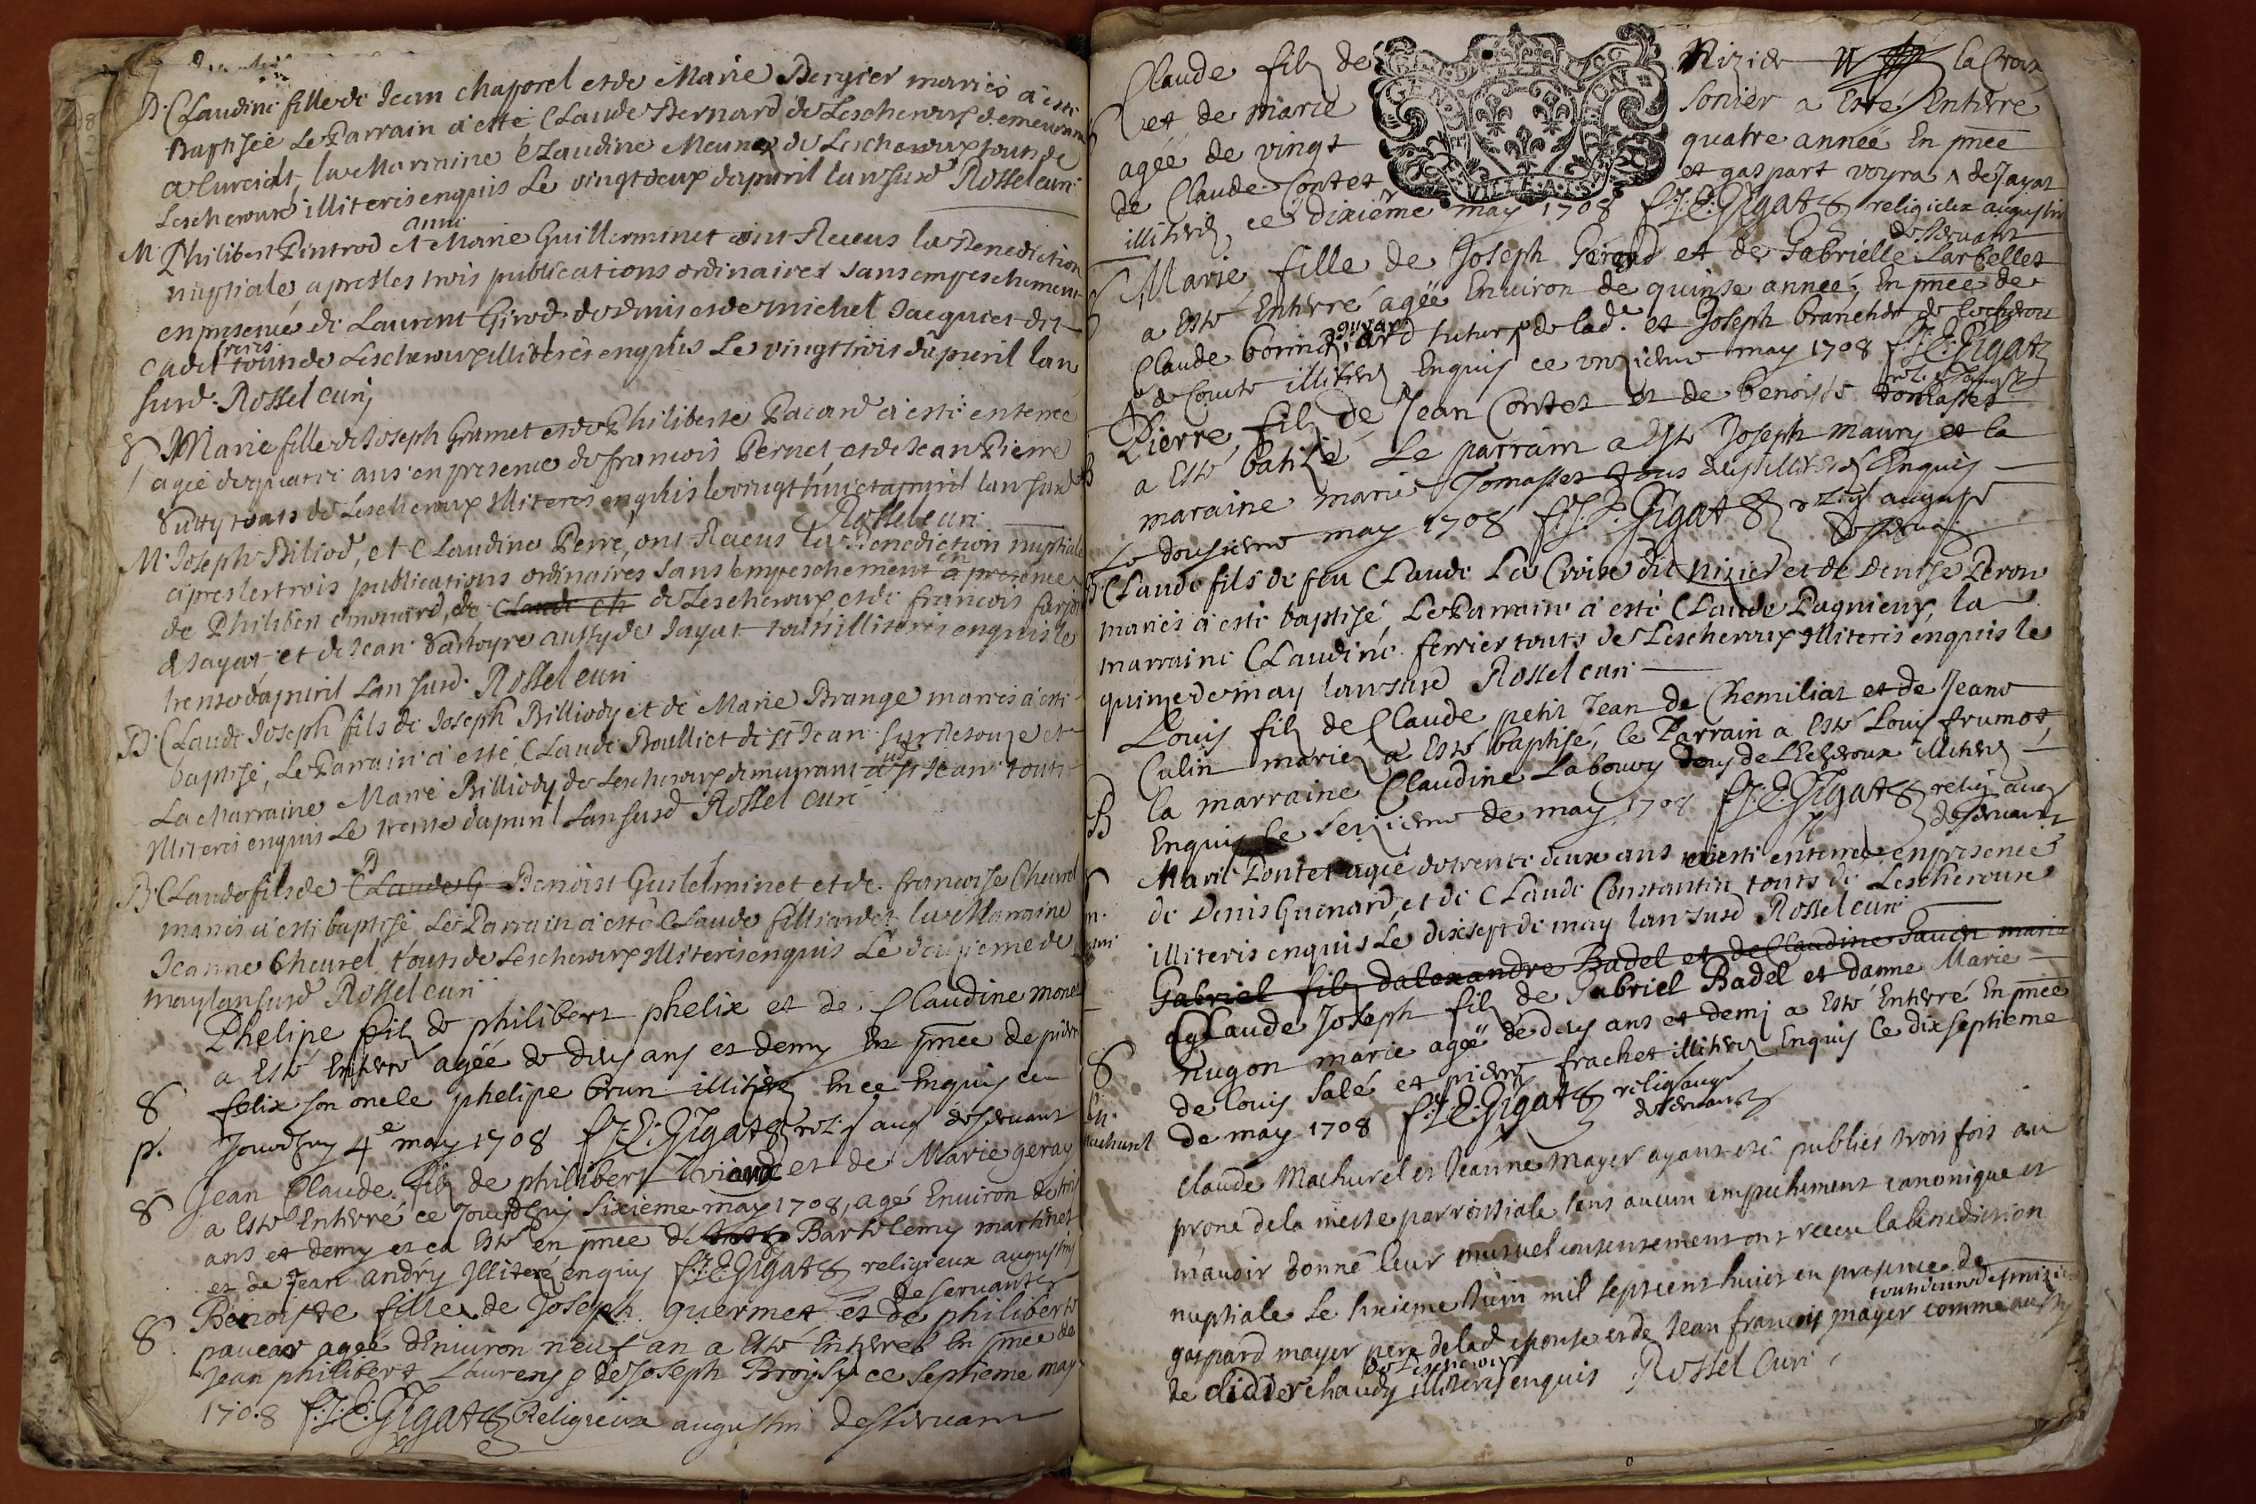 B. Claudine fille de Jean Chaporel et de Marie Bergier mariés à esté
Baptisée Le Parrain à esté Claude Bernard de Lescheroux demeurant
a Curciat, la Marraine Claudine Meunez de Lescheroux touts de
Lescheroux illiteres enquis Le vingtdeux dapuril lan susd Rossel curé
M. Philibert Pintrod et Marie Guillerminet ont Receus la Benediction
nuptiale apres les trois publications ordinaires sans empeschement
en presence de Laurent Girod de Denis et de michel Jacquier dit
Cadet touts de Lescheroux illiteres enquis Le vingttrois dapuril lan
susd. Rossel curé
S Marie fille de Joseph Gramet et de Philiberte Pacard à esté enterrée
agée de quatre ans en presence de francois Pernet et de Jean Pierre
touts de Lescheroux illiteres enquis le vingthuict apuril lan susd
Rossel curé
M. Joseph Biliod, et Claudine Perré, ont Receus la Benediction nuptiale
apres les trois publications ordinaires sans empeschement en presence
de Philibert emonard, de Claude et de Lescheroux, et de francois
de Jayat et de Jean aussy de Jayat touts illiteres enquis le
trente dapuril Lan susd. Rossel curé
B. Claude Joseph fils de Joseph Billiody et de Marie Brange mariés à esté
baptisé, Le Parrain à esté Claude Boulliet de St Jean sur Resouze et
La Marraine Marie Billiody de Lescheroux demeurant à St Jean touts
illiteres enquis Le trente dapuril Lan susd Rossel curé
B. Claude fils de Claude G Benoist Guilelminet et de francoise Cheurel
mariés à esté baptisé, Le Parrain à esté Claude filliardet, la Marraine
Jeanne Cheurel touts de Lescheroux illiteres enquis Le deuxieme de
may lan susd Rossel curé
Phelipe filz de philibert phelix et de Claudine monet
a Esté Enterré agéé de deux ans et demy En pnce de pierre
S felix son oncle phelipe brun illiteré En ce Enquis ce
p. Jourdhuy 4e may 1708 f.J.E. Gigat relig aug deservant
S Jean Claude filz de philibert et de Marie geray
a Esté Enterré ce Jourdhuy sixieme may 1708, agé Environ de trois
ans et demy et ca Esté en pnce de Bartelemy martinet
et de Jean andry illiteré enquis f.J.E. Gigat religieux augustin
deservant
S Benoiste fille de Joseph guermet et de philiberte
pacar agéé denviron neuf an a Esté Enterré En pnce de
Jean philibert Laurens et de Joseph Broisy ce septieme may
1708 f.J.E. Gigat Religieux augustin desservant
Claude filz de Nizide la Croix
et de marie sonier a Esté Enterré
agéé de vingt quatre annéé En pnce
de Claude Contet et gaspart voyra de Jayat
illiterés ce dixiéme may 1708 f.J.E. Gigat religieux augustin
deservant
S Marie fille de Joseph Girod et de Gabrielle Larbellet
a Esté Enterré agéé Environ de quinse annéé, En pnce de
Claude bonne futur de lad. et Joseph branchet de
de Courte illiterés Enquis ce onzieme may 1708 f.J.E. Gigat
Pierre filz de Jean Contet et de benoiste tomasset
a Esté batisé Le parrain a Esté Joseph maury et la
maraine marie Tomasset tous deux illiterés Enquis
Le dousieme may 1708 f.J.E. Gigat relig. august
deserva
B Claude fils de feu Claude La Croix dit nizier et de Denise Peron
mariés à esté baptisé, Le Parrain à esté Claude Pagnieux, la
marraine Claudine ferrier touts de Lescheroux illiteres enquis le
quinze de may lan susd Rossel curé
Louis filz de Claude petit Jean de Chemiliat et de Jeane
Culin mariez a Esté baptisé, le Parrain a Esté Louis frumot,
B la marraine Claudine Labouvy de Lécheroux illiterés
Enquis Le sezieme de may 1708 f.J.E. Gigat relig aug
deservant
Marie Pontet agée de trente deux ans à esté enterrée en presence
de Denis Guenard, et de Claude Constantin touts de Lescheroux
illiteres enquis Le dixsept de may lan susd Rossel curé
Gabriel filz dalexandre Badel et de Claudine marie
Claude Joseph filz de Gabriel Badel et danne Marie
S nugon marie agéé de deux ans et demj a Esté Enterré En pnce
de louis Salé et pierre frachet illiterés Enquis Ce dixseptieme
de may 1708 f.J.E. Gigat relig aug
deservant
Claude Machurel et Jeanne Mayer ayant eté publiés trois fois au
prone de la messe parroissiale sans aucun empechement canonique et
m'avoir donné leur mutuel consentement ont receu la benediction
nuptiale le sixieme Juin mil septcent huict en presence de
gaspard mayer pere de lad epouse et de Jean francois mayer comme aussy
de didier chaudy illiteres enquis Rossel Curé